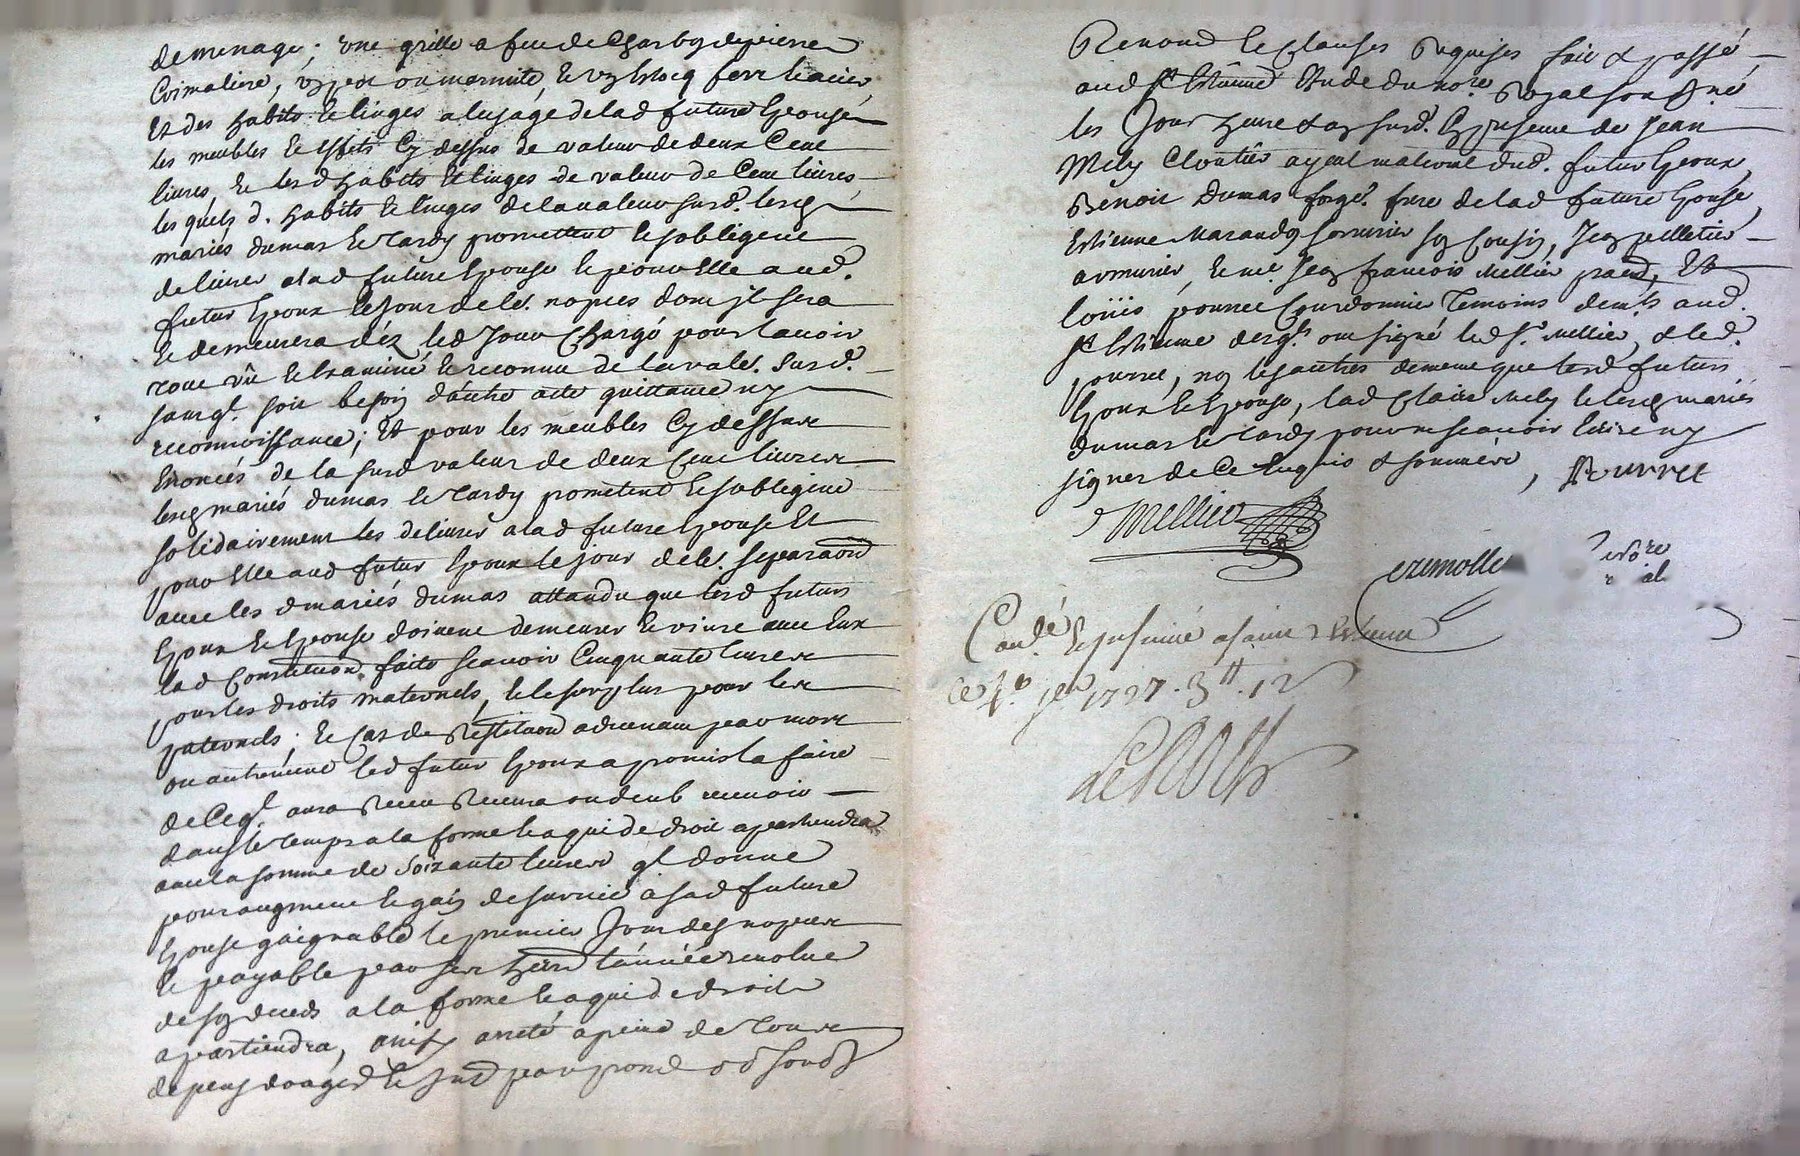 de menage; une grille a feu de Charbon de pierre
Crimaliere, un pot ou marmite, et un ferré
et des habits et linges a lusage de lad future Epouse
les meubles et effets Cy dessus de valeur de deux Cent
livres, et lesd habits et linges de valeur de Cent livres
lesquels d. habits et linges de la valeur susd. lesd
mariés dumas et tardy promettent et sobligent
de livrer a lad future Epouse et pour elle aud.
futur Epoux le jour de le. nopces dont jl sera
et demeurera déz led Jour Chargé pour lavoir
tout vû et Examiné et reconnu de la vale. susd.
sans ql. soit besoin dautre acte quittance ny
reconnoissance; Et pour les meubles Cy dessus
Enoncés de la susd valeur de deux Cent livres
lesd mariés dumas et tardy promettent et sobligent
solidairement les delivrer a lad future Epouse et
pour elle aud futur Epoux le jour de le. separaon
avec les d mariés dumas attandu que lesd futurs
Epoux et Epouse doivent demeurer et vivre avec Eux
lad Constitution faite scavoir Cinquante livres
pour les droits maternels, et le surplus pour les
paternels; et Cas de restituon advenant par mort
ou autrement led futur Epoux a promis la faire
de Ceql. aura receu recevra ou deub recevoir
dans le temps a la forme et a qui de droit apartiendra
avec la somme de soixante livres ql donne
pour augment et gain de survie a sad future
Epouse gaignable le premier Jour des nopces
et payable par ses hers lannée revolue
de son deceds a la forme et a qui de droit
apartiendra, ainsy aresté a peine de tous
depens domages et par prom
Renond et Clauses requises fait et passé
aud St Estienne Etude du nore Royal soussigné
les Jour heure et an susd. En presence de Jean
Mely Cloutier ayeul maternel dud. futur Epoux,
Benoit Dumas forger. frere de lad future Epouse,
Estienne Marandon serrurier son Cousin, Jean pelletier
armurier, et me Jean francois Mellier pratd, Et
loüis pourret Courdonnier Temoins demts aud.
St Estienne desqls ont signé led sr. Mellier, et led.
pourret, non les autres de meme que lesd futurs
Epoux et Epouse, lad Claire Mely et lesd mariés
dumas et tardy pour ne scavoir Ecrire ny
signer de Ce Enquis et sommés,
Pourret
Mellier
Conlé. et insinué a saint Estienne
ce 4e jer 1727. 3tt. 12